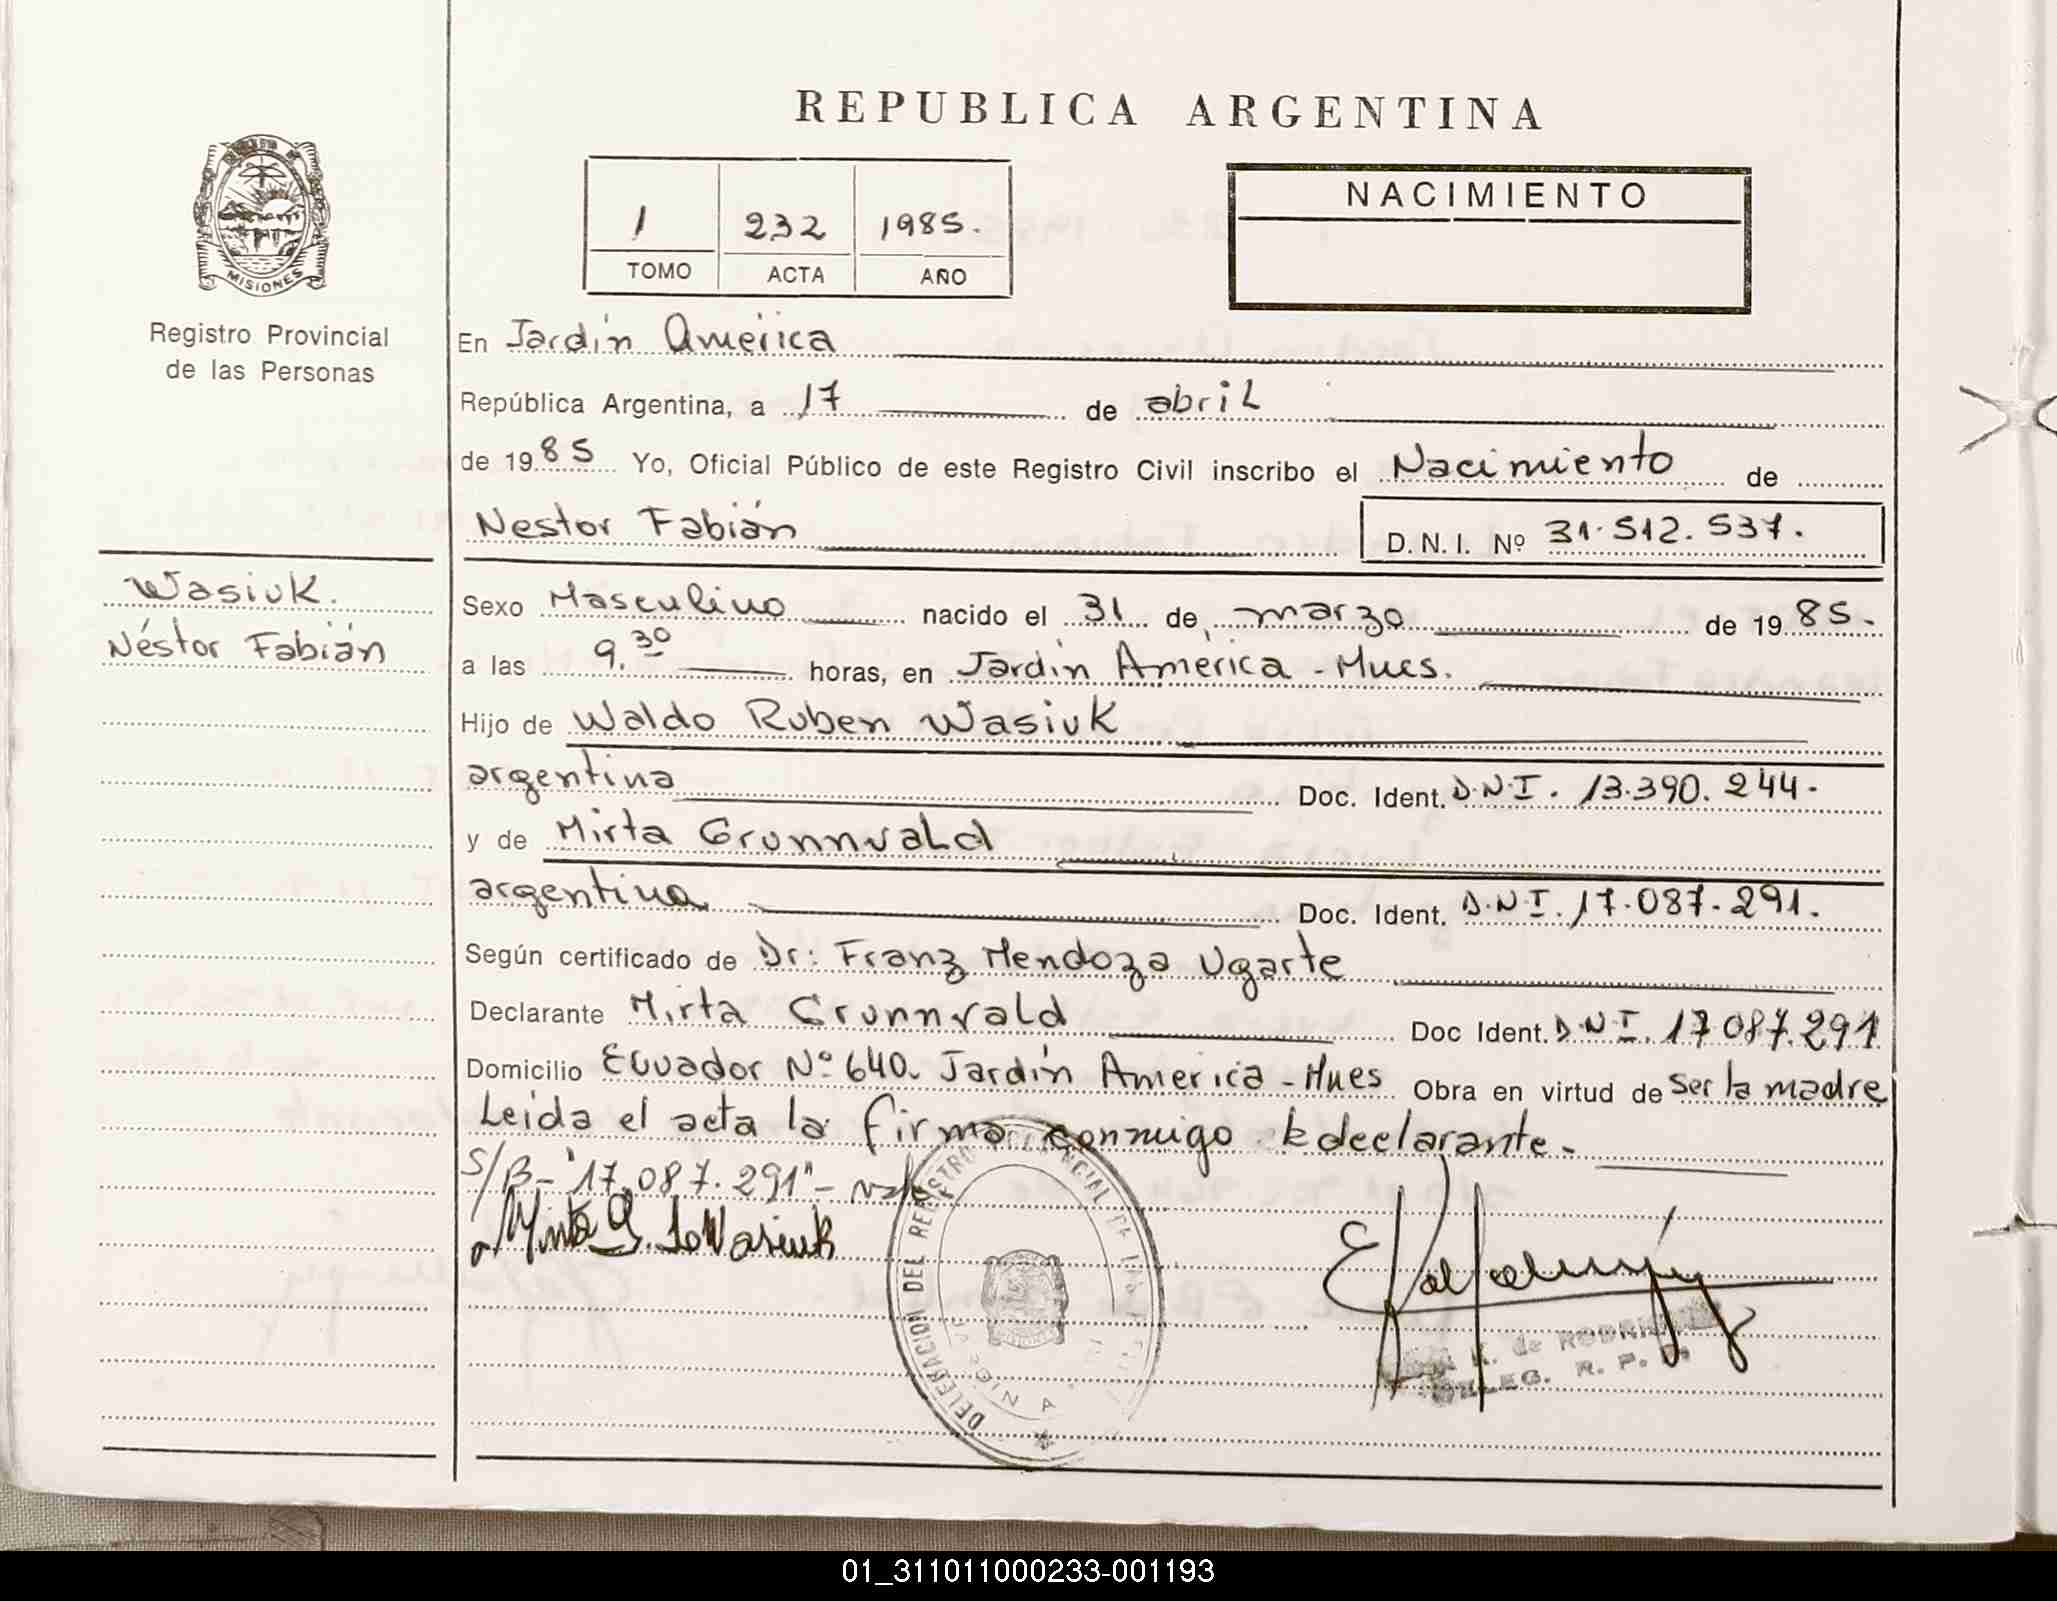 REPUBLICA ARGENTINA
MISIONES
Registro Provincial
de las Personas
1 232 1985.
TOMO ACTA AÑO
NACIMIENTO
En Jardín América
República Argentina, a 17 de abril
de 1985 Yo, Oficial Público de este Registro Civil inscribo el Nacimiento de
Nestor Fabián D.N.I. Nº 31.512.537.
Wasiuk.
Néstor Fabián
Sexo Masculino nacido el 31 de marzo de 1985.
a las 9.30 horas, en Jardín America - Mnes.
Hijo de Waldo Ruben Wasiuk
argentina Doc. Ident. D.N.I. 13.390.244.
y de Mirta Grunnvald
argentina Doc. Ident. D.N.I. 17.087.291.
Según certificado de Dr: Franz Mendoza Ugarte
Declarante Mirta Grunnvald Doc Ident. D.N.I. 17.087.291
Domicilio Ecuador Nº 640. Jardín America - Mnes Obra en virtud de ser la madre
Leida el acta la firma conmigo la declarante.
S/B - "17.087.291" - vale.
Mirta G. de Wasiuk
DELEGACION DEL REGISTRO PROVINCIAL DE LAS
de RODRI
DELEG. R. P.
01_311011000233-001193